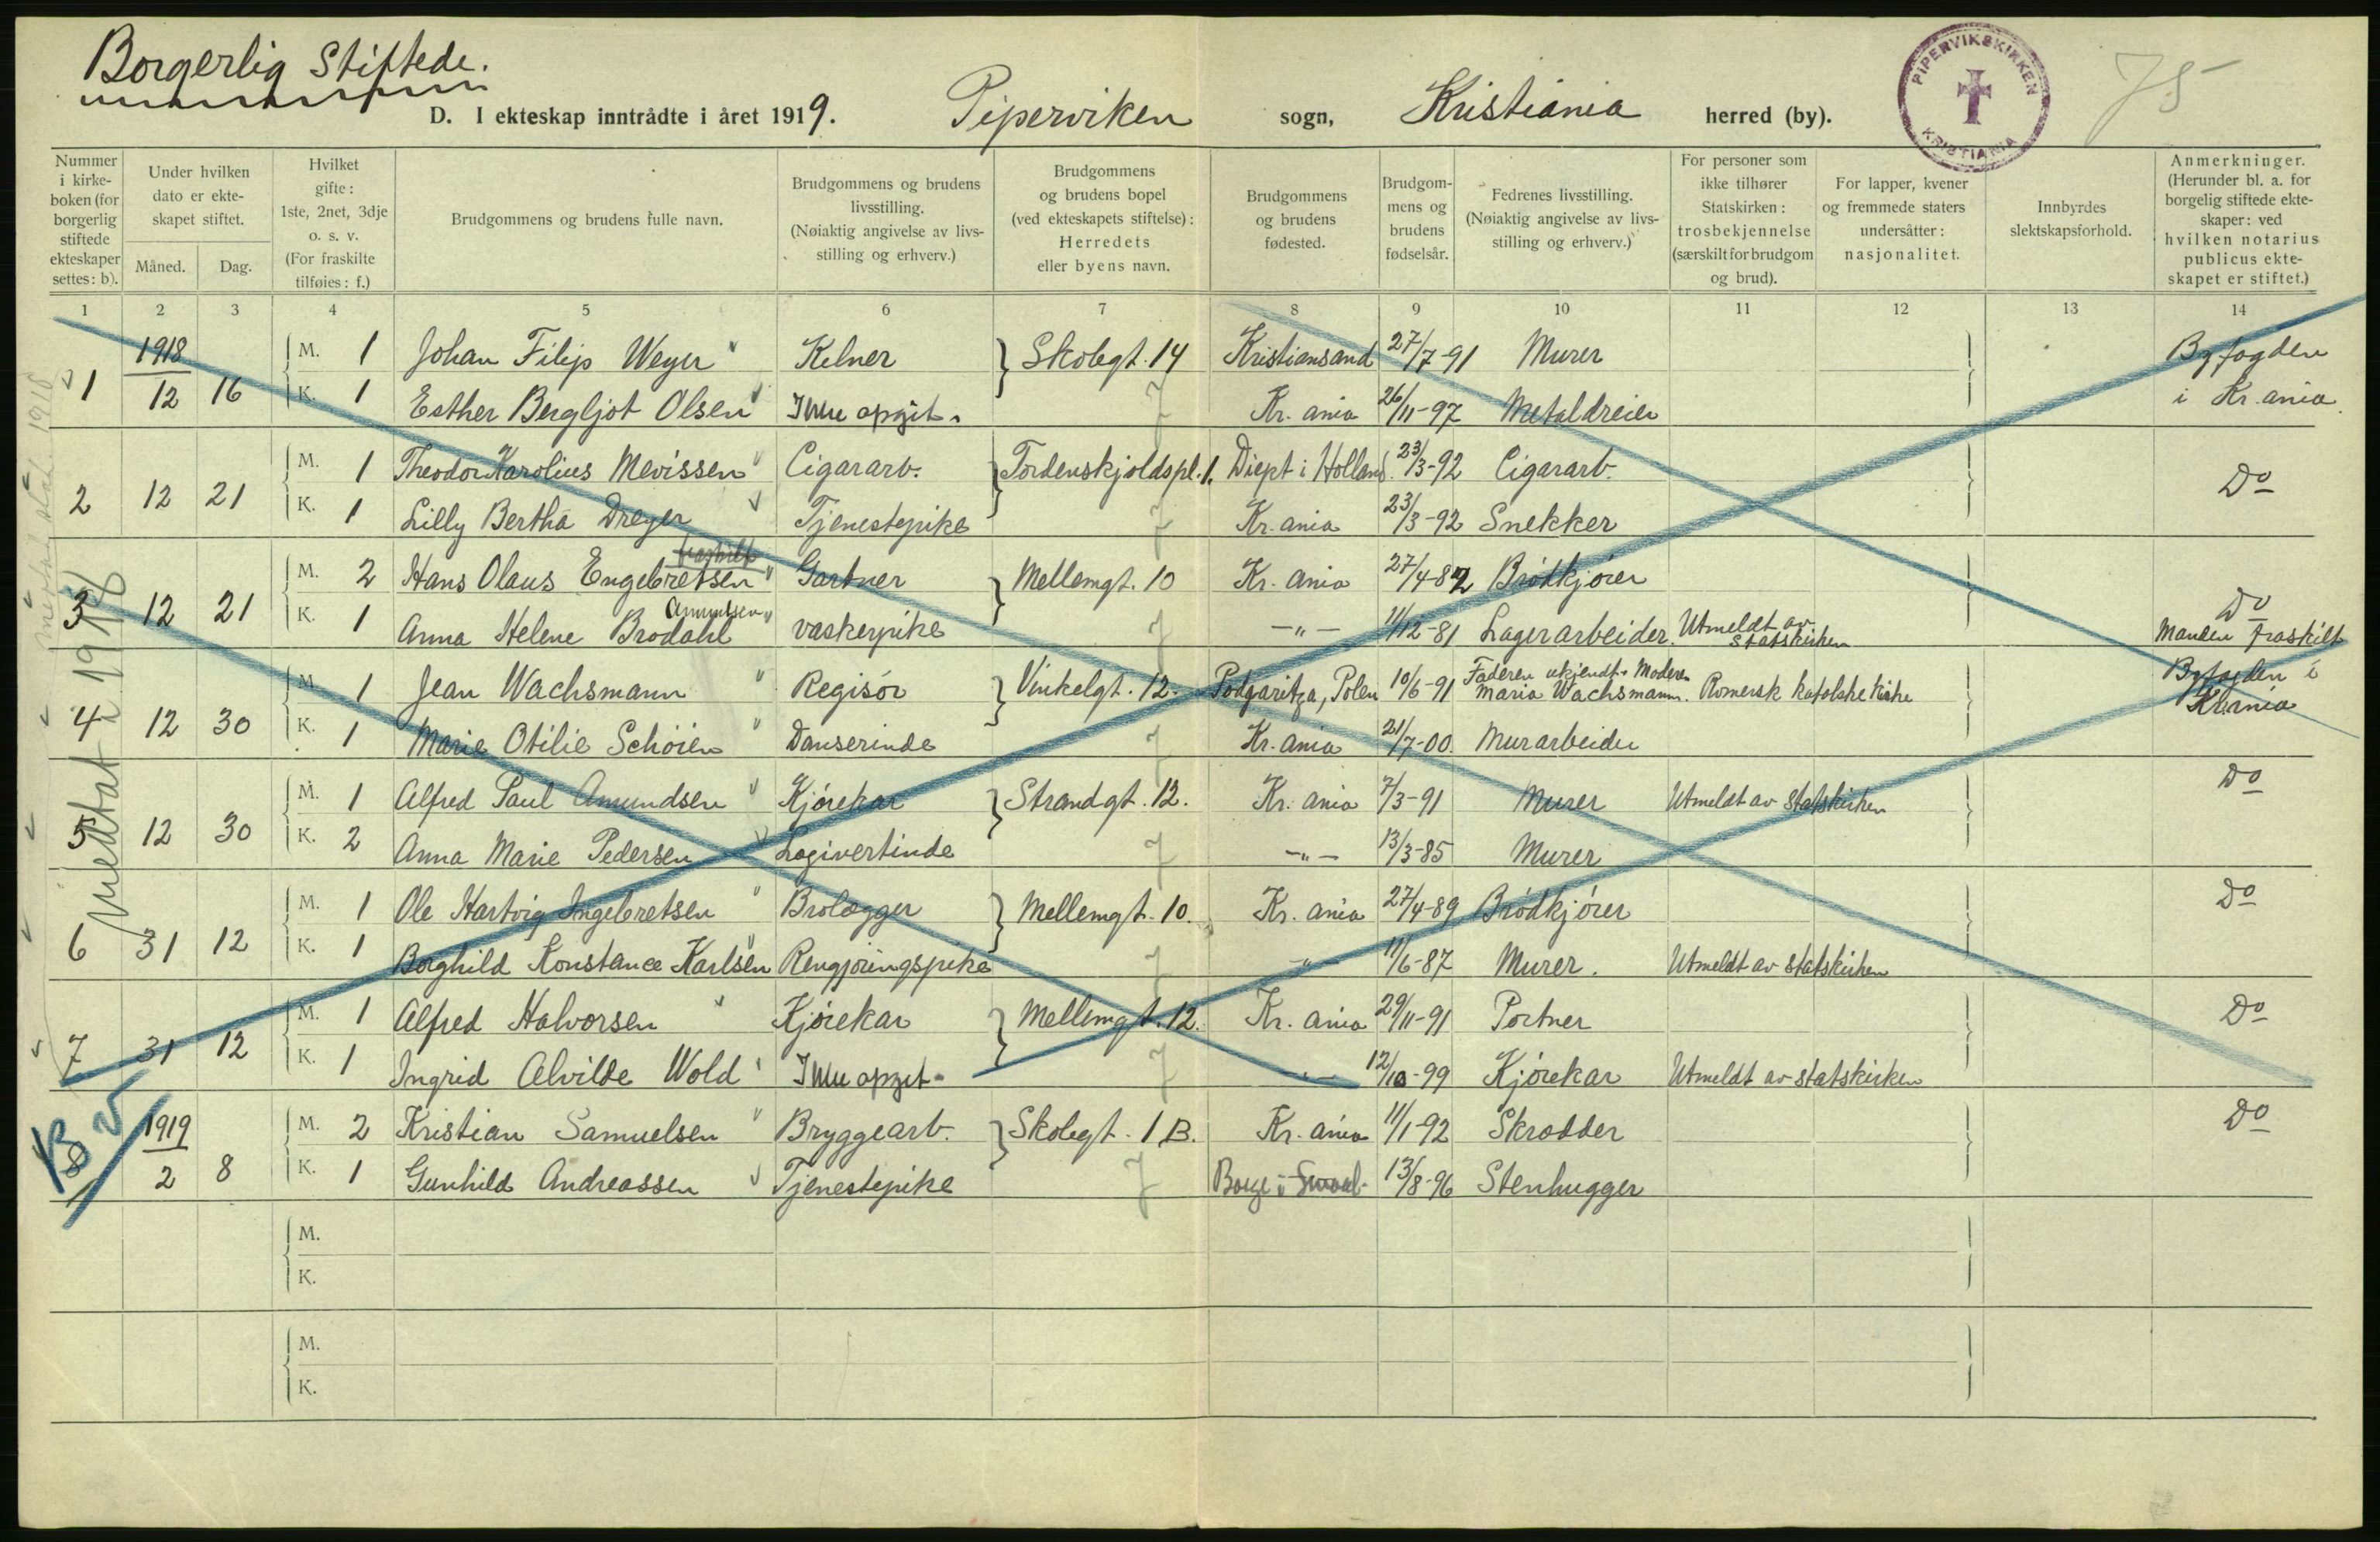 Borgerlig Stiftede.
D. I ekteskap inntrådte i året 1919. Piperviken sogn, Kristiania herred (by).
PIPERVIKSKIRKEN KRISTIANIA
75
Nummer i kirke-boken (for borgerlig stiftede ekteskaper settes: b).
Under hvilken dato er ekte-skapet stiftet.
Måned. Dag.
Hvilket gifte: 1ste, 2net, 3dje o. s. v. (For fraskilte tilføies: f.)
Brudgommens og brudens fulle navn.
Brudgommens og brudens livsstilling. (Nøiaktig angivelse av livs-stilling og erhverv.)
Brudgommens og brudens bopel (ved ekteskapets stiftelse): Herredets eller byens navn.
Brudgommens og brudens fødested.
Brudgom-mens og brudens fødselsår.
Fedrenes livsstilling. (Nøiaktig angivelse av livs-stilling og erhverv.)
For personer som ikke tilhører Statskirken: trosbekjennelse (særskilt for brudgom og brud).
For lapper, kvener og fremmede staters undersåtter: nasjonalitet.
Innbyrdes slektskapsforhold.
Anmerkninger. (Herunder bl. a. for borgelig stiftede ekte-skaper: ved hvilken notarius publicus ekte-skapet er stiftet.)
1 2 3 4 5 6 7 8 9 10 11 12 13 14
1918
M. 1 Johan Filip Weyer Kelner Skolegt. 14 Kristiansand 27/7-91 Murer Byfogden
1 12 16 K. 1 Esther Bergljot Olsen Ikke opgit. Kr. ania 26/11-97 Metaldreier i Kr. ania
M. 1 Theodor Karolius Mevissen Cigararb. Tordenskjoldspl. 1. Diept i Holland. 23/3-92 Cigararb. Do
2 12 21 K. 1 Lilly Bertha Dreyer Tjenestepike Kr. ania 23/3-92 Snekker
fraskilt
M. 2 Hans Olaus Engebretsen Gartner Mellemgt. 10 Kr. ania 27/4-82 Brödkjörer
Amundsen
3 12 21 K. 1 Anna Helene Brodahl vaskepike -"- 11/12-81 Lagerarbeider. Utmeldt av Statskirken Do Manden fraskilt
M. 1 Jean Wachsmann Regisör Vinkelgt. 12. Podgaritza, Polen 10/6-91 Faderen ukjendt. Moderen Maria Wachsmann. Romersk katolske kirke Byfogden i Kr.ania
4 12 30 K. 1 Marie Otilie Schöien Danserinde Kr. ania 21/7-00. Murarbeider
M. 1 Alfred Paul Amundsen Kjörekar Strandgt. 12. Kr. ania 7/3-91 Murer Utmeldt av Statskirken Do
5 12 30 K. 2 Anna Marie Pedersen Logivertinde -"- 13/3-85 Murer
M. 1 Ole Hartvig Ingebretsen Brolægger Mellemgt. 10. Kr. ania 27/4-89 Brödkjörer Do
6 31 12 K. 1 Borghild Konstance Karlsen Rengjöringspike -"- 11/6-87 Murer. Utmeldt av statskirken
M. 1 Alfred Halvorsen Kjörekar Mellemgt. 12. Kr. ania 29/11-91 Portner Do
7 31 12 K. 1 Ingrid Alvilde Wold Ikke opgit. -"- 12/10-99 Kjörekar Utmeldt av statskirken
1919
M. 2 Kristian Samuelsen Bryggearb. Skolegt. 1 B. Kr. ania 11/1-92 Skrædder Do
8 2 8 K. 1 Gunhild Andreassen Tjenestepike Borge i 13/8-96 Stenhugger
M.
K.
M.
K.
medtat 1918
B